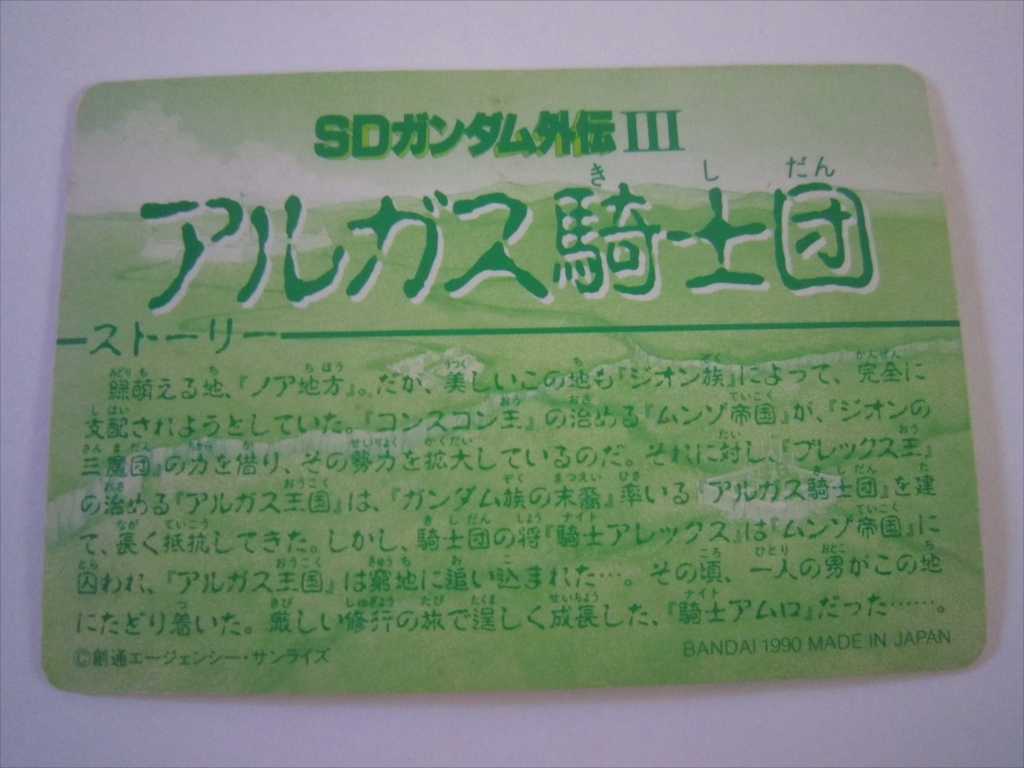 SDガンダム外伝III
きしだん
アルガス騎士団
ストーリー
緑萌える地、『ノア地方』。だが、美しいこの地も『ジオン族』によって、完全に
支配されようとしていた。『コンスコン王』の治める『ムンゾ帝国』が、『ジオンの
三魔団』の力を借り、その勢力を拡大しているのだ。それに対し、『ブレックス王』
の治める『アルガス王国』は、『ガンダム族の末裔』率いる『アルガス騎士団』を建
て、長く抵抗してきた。しかし、騎士団の将『騎士アレックス』は『ムンゾ帝国』に
囚われ、『アルガス王国』は窮地に追い込まれた…。その頃、一人の男がこの地
にたどり着いた。厳しい修行の旅で逞しく成長した、『騎士アムロ』だった……。
©創通エージェンシー・サンライズ
BANDAI 1990 MADE IN JAPAN